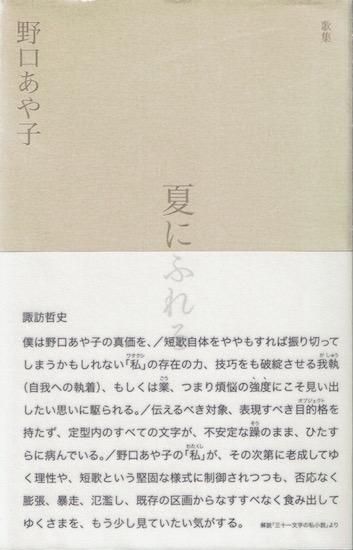 歌集
野口あや子
夏にふれる
諏訪哲史
僕は野口あや子の真価を、/短歌自体をややもすれば振り切って
しまうかもしれない「私」の存在の力、技巧をも破綻させる我執
(自我への執着)、もしくは業、つまり煩悩の強度にこそ見い出
したい思いに駆られる。/伝えるべき対象、表現すべき目的格を
持たず、定型内のすべての文字が、不安定な躁のまま、ひたす
らに病んでいる。/野口あや子の「私」が、その次第に老成してゆ
く理性や、短歌という堅固な様式に制御されつつも、否応なく
膨張、暴走、氾濫し、既存の区画からなすすべなく食み出して
ゆくさまを、もう少し見ていたい気がする。
解説「三十一文字の私小説」より